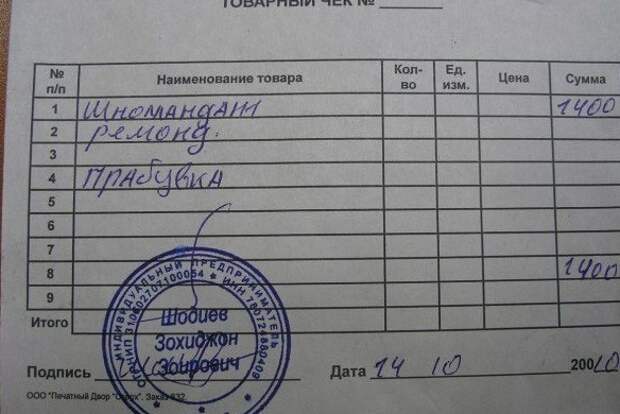 ТОВАРНЫЙ ЧЕК № ______
№ п/п Наименование товара Кол-во Ед. изм. Цена Сумма
1 Шномандаж 1400
2 ремонд.
3
4 прабувка
5
6
7
8 1400
9
Итого
ИНДИВИДУАЛЬНЫЙ ПРЕДПРИНИМАТЕЛЬ
Шодиев
Зохиджон
Зоирович
Подпись
Дата 14 10 20010
ООО "Печатный Двор Заказ 932.